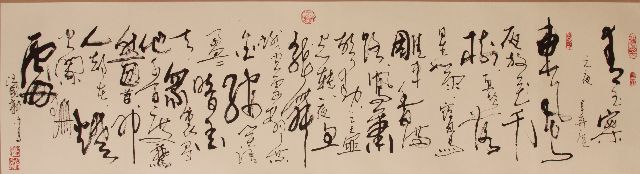 青玉案
元夕 辛弃疾
東風
夜放花千
樹更吹落
星如雨寶馬
雕車香滿
路鳳簫
聲動玉壺
光轉一夜魚
龍舞
蛾兒雪柳黃
金縷笑語
盈盈暗香
去眾裏尋
他千百度驀
然回首那
人卻在燈
火闌珊
處